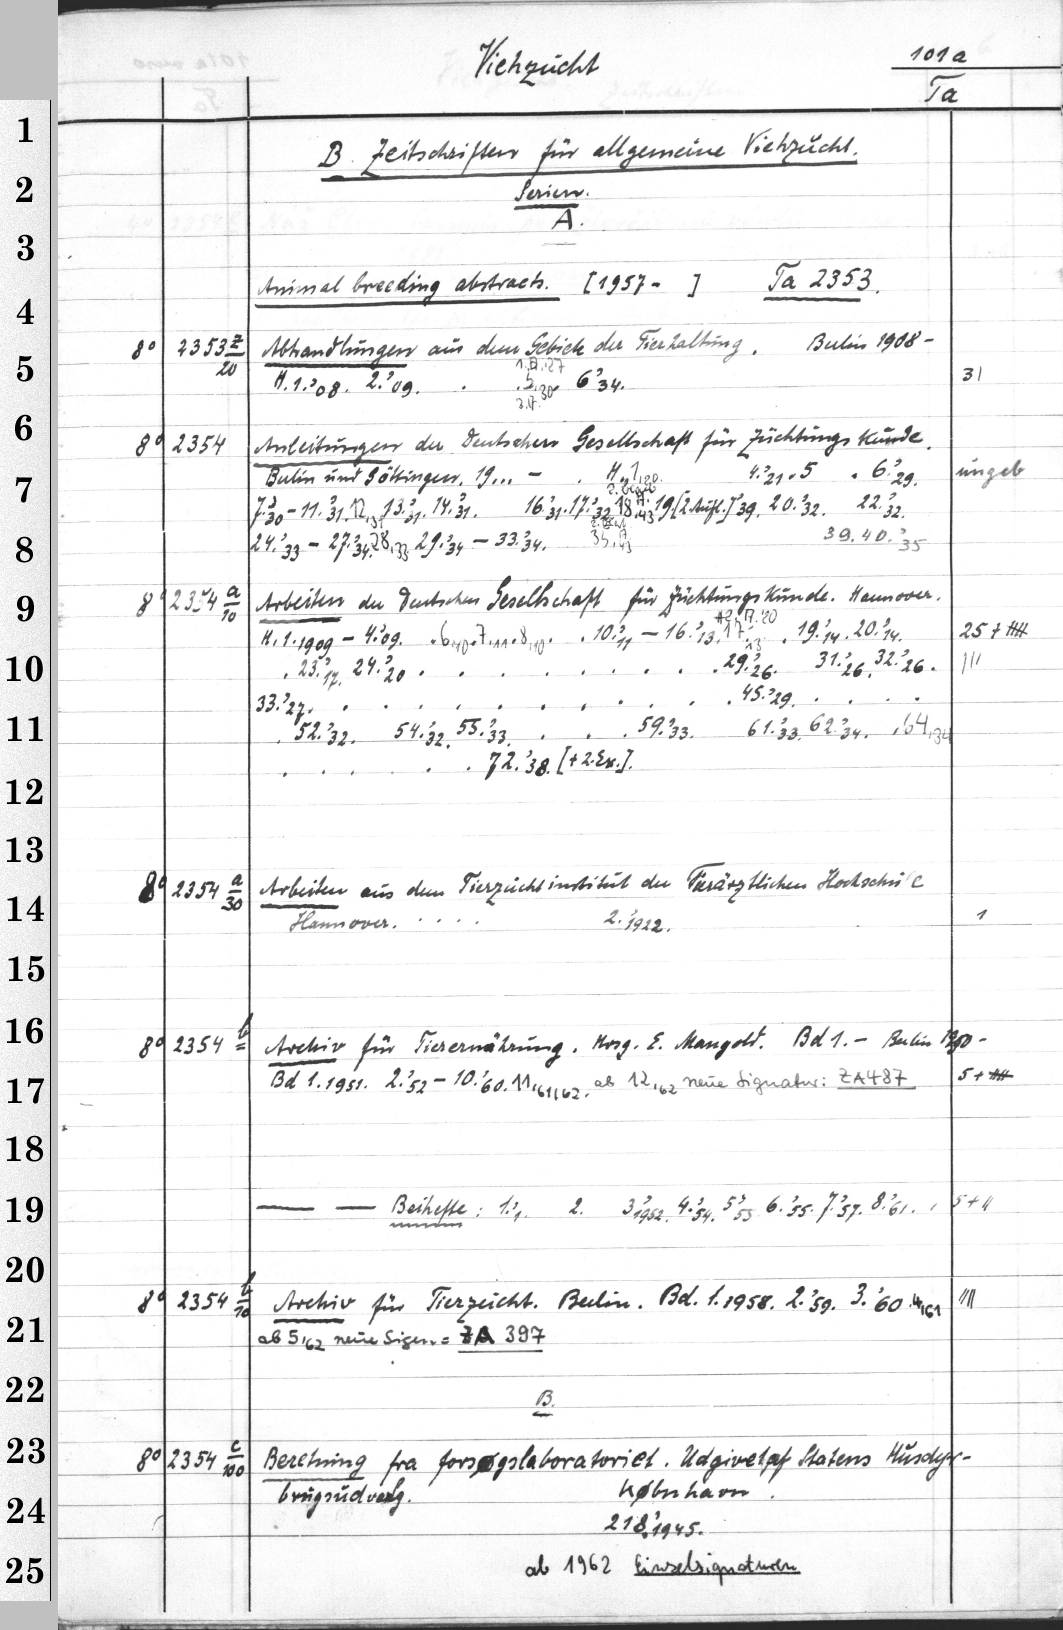 Viehzucht
101a
Ta
B. Zeitschriften für allgemeine Viehzucht.
Serien.
A.
Animal breeding abstracts. [1957- ] Ta 2353.
8° 2353 z/20 Abhandlungen aus dem Gebiete der Tierhaltung. Berlin 1908-
H.1.'08. 2.'09. . . 5.'30. 6.'34. 31
8° 2354 Anleitungen der Deutschen Gesellschaft für Züchtungskunde.
Berlin und Göttingen, 19... - . H. 1,20. 4.'21. 5 . 6.'29. ungeb
7.'30 - 11.'31. 12,31 13.'31. 14.'31. 16.'31. 17.'32 18.'43 19[2.Aufl.]'39. 20.'32. 22.'32.
24.'33 - 27.'34. 28,33 29.'34 - 33.'34. 39. 40.'35
8° 2354 a/10 Arbeiten der Deutschen Gesellschaft für Züchtungskunde. Hannover.
H.1.1909 - 4.'09. . 6,10. 7,11. 8,10. . 10.'11 - 16.'13. 17.'13 . 19.'14. 20.'14. 25 +
. 23.'17. 24.'20 . . . . . . . . 29.'26. 31.'26. 32.'26. |||
33.'27. . . . . . . . . . . 45.'29. . . .
. 52.'32. 54.'32. 55.'33. . . . 59.'33. 61.'33. 62.'34. . 64,34
. . . . . . 72.'38. [+2.Ex.].
8° 2354 a/30 Arbeiten aus dem Tierzuchtinstitut der Tierärztlichen Hochschule
Hannover. . . . . 2.'1922. 1
8° 2354 b Archiv für Tierernährung. Hrsg. E. Mangold. Bd 1.- Berlin 1950-
Bd 1.1951. 2.'52 - 10.'60. 11,'61/62. ab 12,'62 neue Signatur: ZA487 5 +
— — Beihefte: 1.'1. 2. 3.'1952. 4.'54. 5.'55 6.'55. 7.'57. 8.'61. . 5+||
8° 2354 b/10 Archiv für Tierzucht. Berlin. Bd. 1.1958. 2.'59. 3.'60. 4,'61 ||||
ab 5,'62 neue Sign. = ZA 397
B.
8° 2354 c/100 Beretning fra forsøgslaboratoriet. Udgivet af Statens Husdyr-
brugsudvalg. København.
218.'1945.
ab 1962 Einzelsignaturen
1
2
3
4
5
6
7
8
9
10
11
12
13
14
15
16
17
18
19
20
21
22
23
24
25